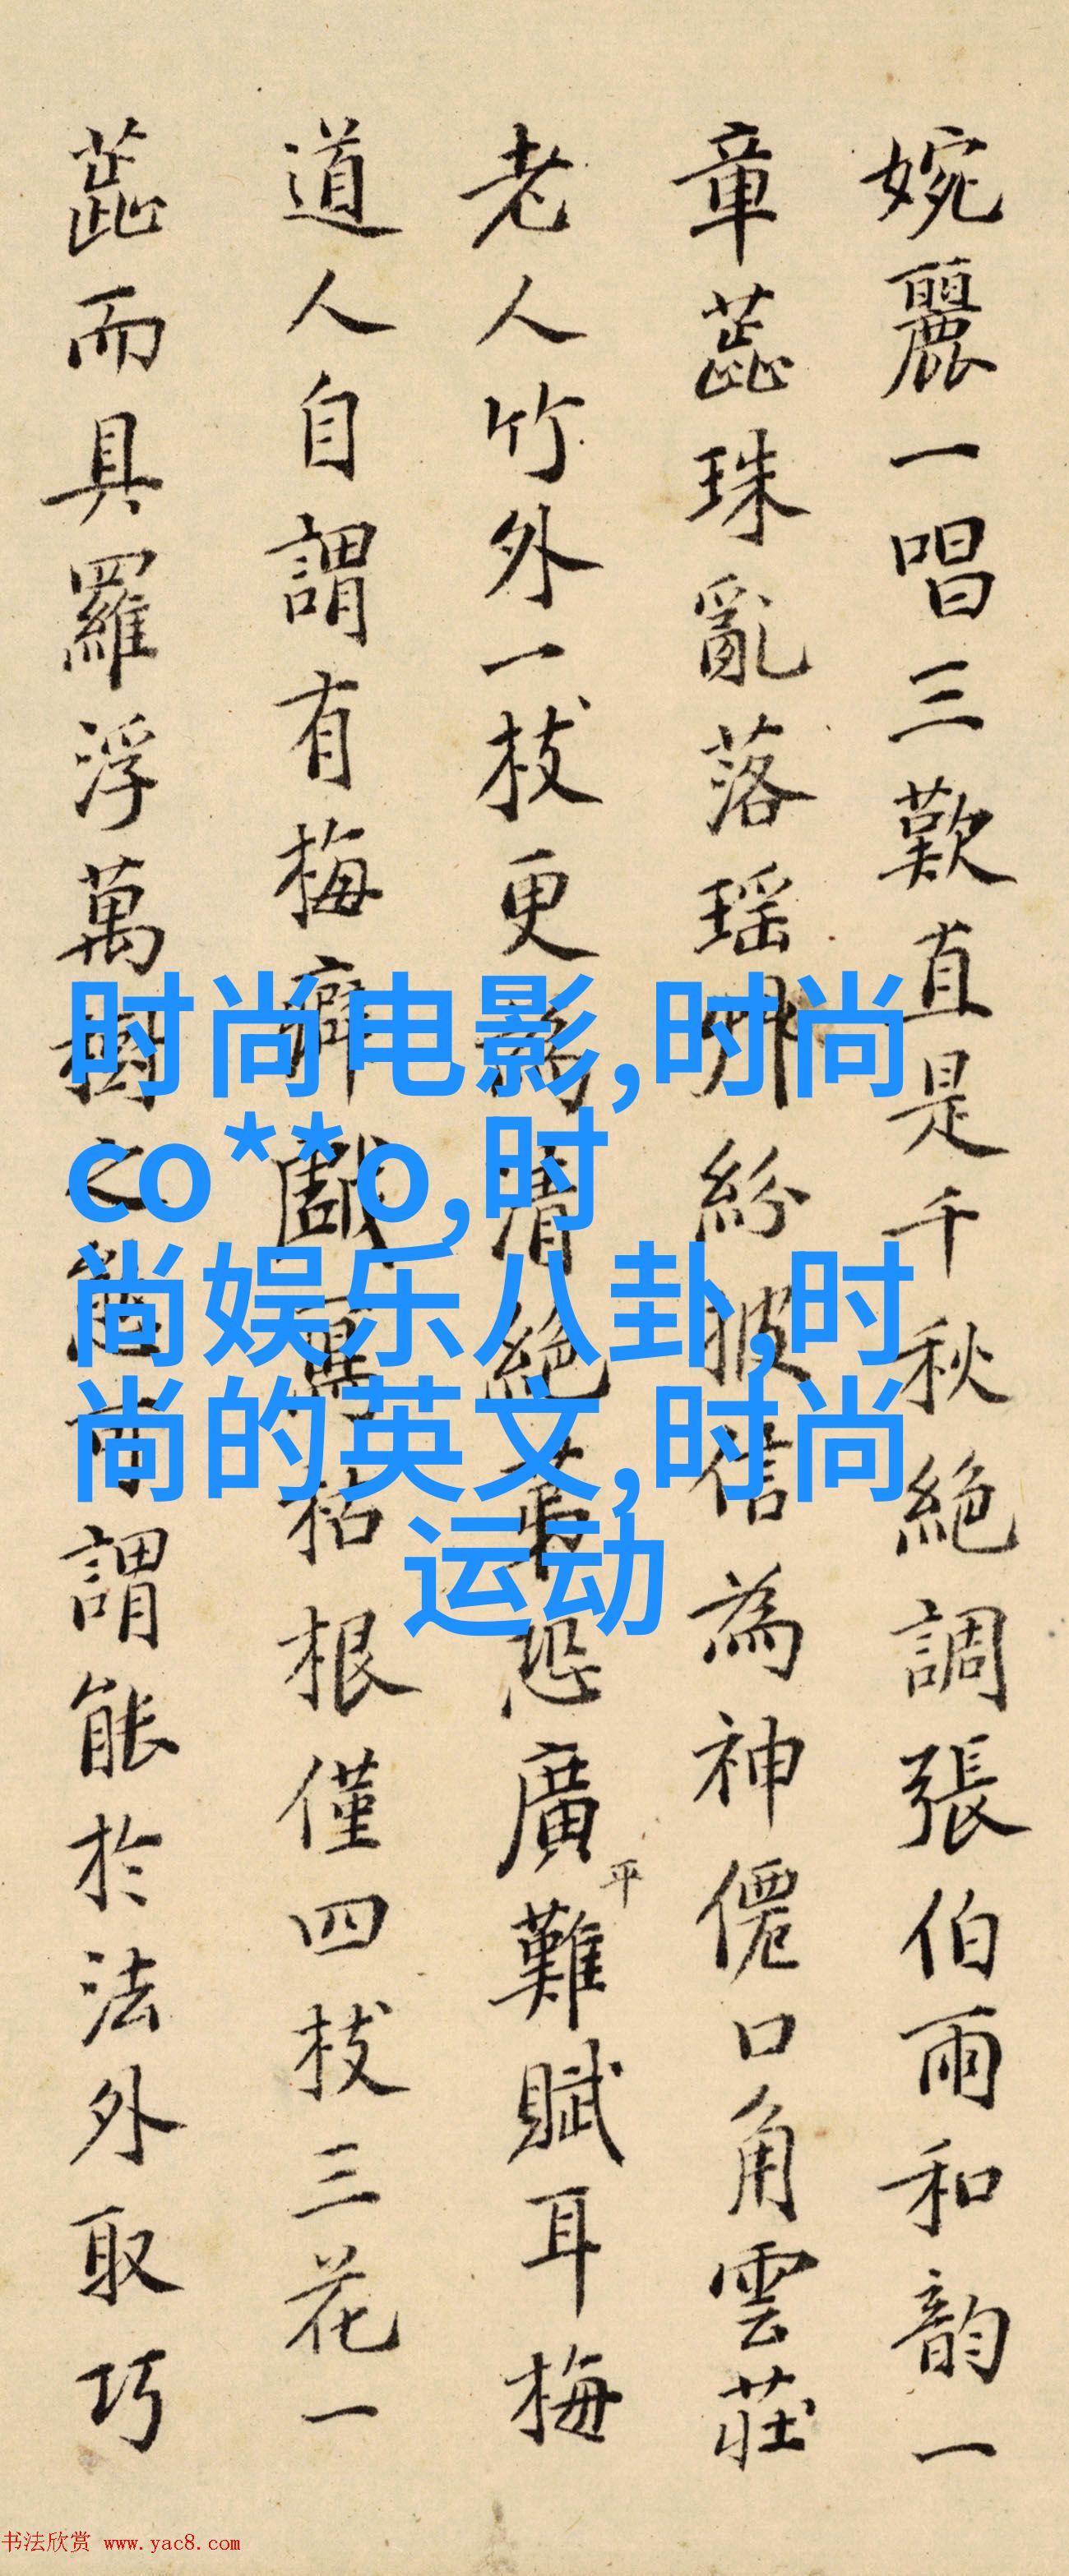 婉麗一唱三歎直是千秋絕調張伯雨和韵一
章蕋珠亂落瑶艸紛披信為神僊口角雲莊
老人竹外一枝更為清絕第恐廣平難賦耳梅
道人自謂有梅癖戲寫枯根僅四枝三花一
蕋而具羅浮萬樹之態可謂能於法外取巧
时尚电影,时尚
co**o,时
尚娱乐八卦,时
尚的英文,时尚
运动
书法欣赏 www.yac8.com